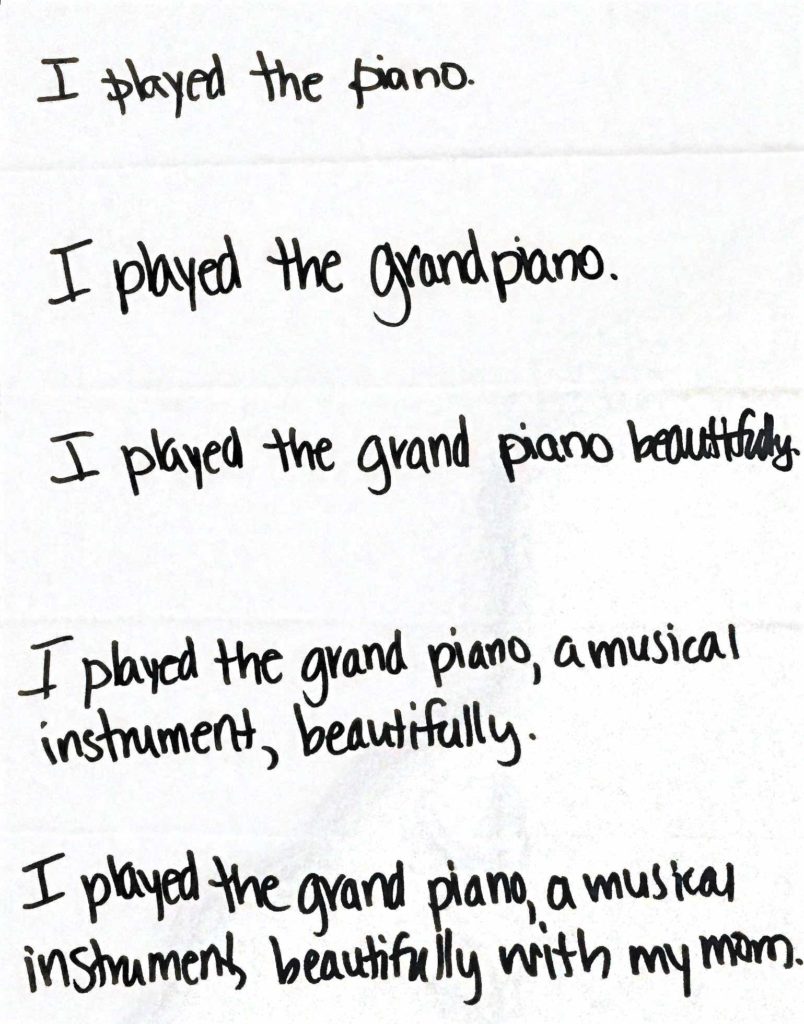 I played the piano.
I played the grand piano.
I played the grand piano beautifully.
I played the grand piano, a musical
instrument, beautifully.
I played the grand piano, a musical
instrument, beautifully with my mom.